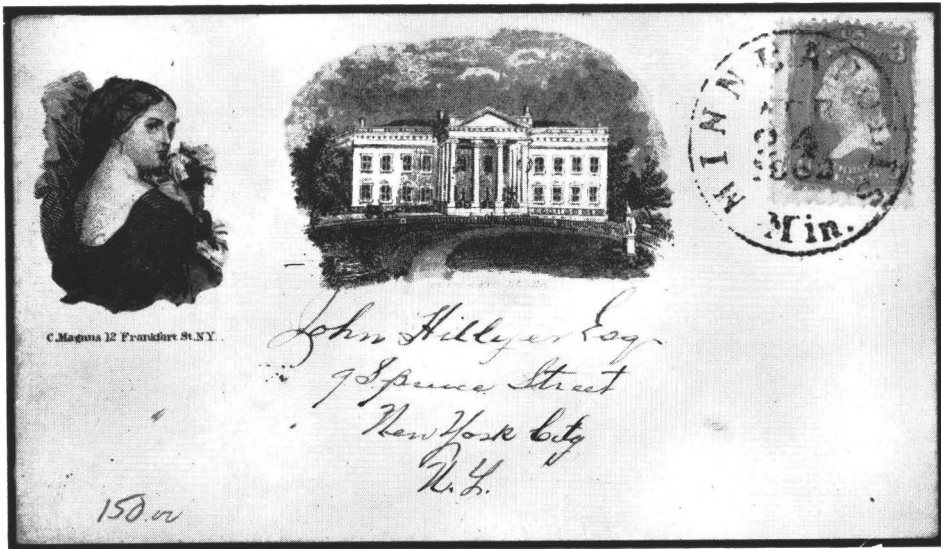 MINNEAPOLIS
24
1863
Min.
3
C. Magnus 12 Frankfurt St. N.Y.
John Hillyer Esq.
9 Spruce Street
New York City
N.Y.
150.00